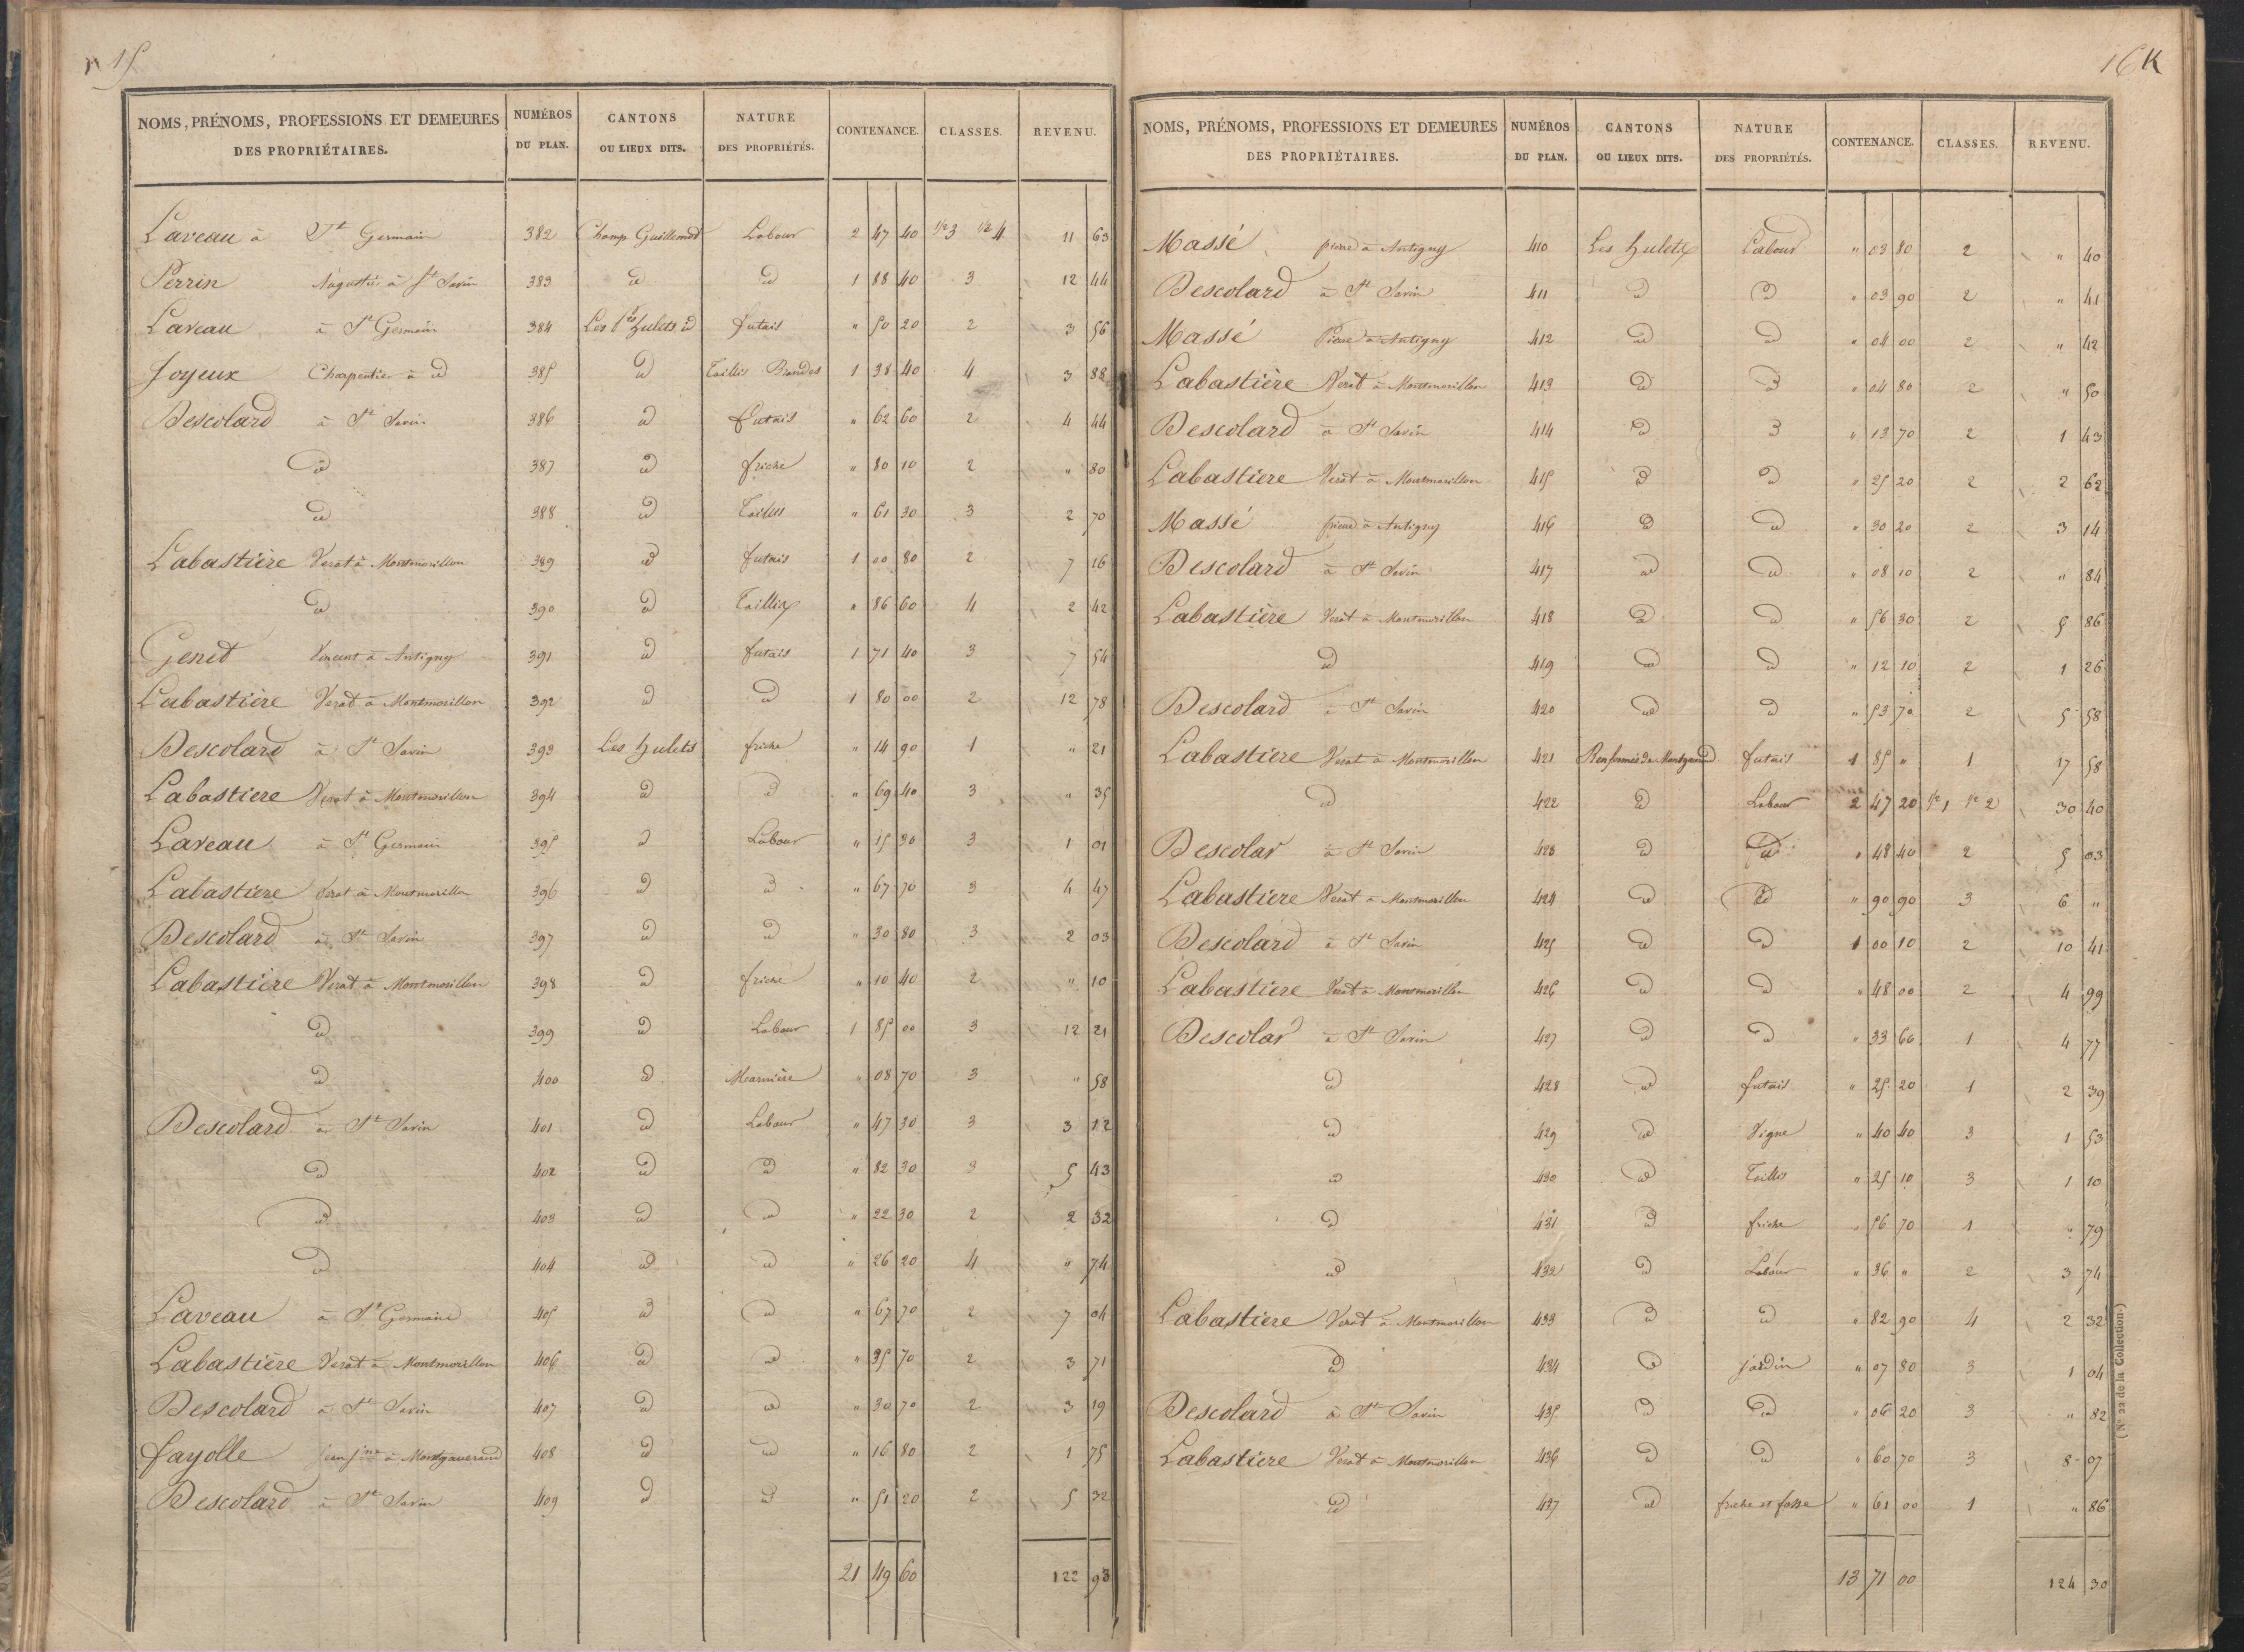 15
NOMS, PRÉNOMS, PROFESSIONS ET DEMEURES DES PROPRIÉTAIRES. NUMÉROS DU PLAN. CANTONS OU LIEUX DITS. NATURE DES PROPRIÉTÉS. CONTENANCE. CLASSES. REVENU.
Laveau à St Germain 382 Champ Guillemot Labour 2 47 40 1/2 3 1/2 4 11 63
Perrin à St Savin 383 id id 1 88 40 3 12 44
Laveau à St Germain 384 Les Hulets id futais " 50 20 2 3 56
Joyeux Charpentier à id 385 id Taillis Brandes 1 38 40 4 3 88
Descolard à St Savin 386 id futais " 62 60 2 4 44
id 387 id friche " 80 10 2 " 80
id 388 id Taillis " 61 30 3 2 70
Labastière Verat à Montmorillon 389 id futais 1 00 80 2 7 16
id 390 id Taillis " 86 60 4 2 42
Genet Vincent à Antigny 391 id futais 1 71 40 3 7 54
Labastière Verat à Montmorillon 392 id id 1 80 00 2 12 78
Descolard à St Savin 393 Les hulets friche " 14 90 1 " 21
Labastiere Verat à Montmorillon 394 id id " 69 40 3 " 35
Laveau à St Germain 395 id Labour " 15 30 3 1 01
Labastiere Verat à Montmorillon 396 id id " 67 70 3 4 47
Descolard à St Savin 397 id id " 30 80 3 2 03
Labastière Verat à Montmorillon 398 id friche " 10 40 2 " 10
id 399 id Labour 1 85 00 3 12 21
id 400 id Marnière " 08 70 3 " 58
Descolard à St Savin 401 id Labour " 47 30 3 3 12
id 402 id id " 82 30 3 5 43
id 403 id id " 22 30 2 2 32
id 404 id id " 26 20 4 " 74
Laveau à St Germain 405 id id " 67 70 2 7 04
Labastière Verat à Montmorillon 406 id id " 35 70 2 3 71
Descolard à St Savin 407 id id " 30 70 2 3 19
fayolle jean jne à Montgauerand 408 id id " 16 80 2 1 75
Descolard à St Savin 409 id id " 51 20 2 5 32
21 49 60 122 93
16 K
NOMS, PRÉNOMS, PROFESSIONS ET DEMEURES DES PROPRIÉTAIRES. NUMÉROS DU PLAN. CANTONS OU LIEUX DITS. NATURE DES PROPRIÉTÉS. CONTENANCE. CLASSES. REVENU.
Massé pierre à Antigny 410 Les hulets Labour " 03 80 2 " 40
Descolard à St Savin 411 id id " 03 90 2 " 41
Massé Pierre à Antigny 412 id id " 04 00 2 " 42
Labastière Verat à Montmorillon 413 id id " 04 80 2 " 50
Descolard à St Savin 414 id id " 13 70 2 1 43
Labastiere Verat à Montmorillon 415 id id " 25 20 2 2 62
Massé pierre à Antigny 416 id id " 30 20 2 3 14
Descolard à St Savin 417 id id " 08 10 2 " 84
Labastière Verat à Montmorillon 418 id id " 56 30 2 5 86
id 419 id id " 12 10 2 1 26
Descolard à St Savin 420 id id " 53 70 2 5 58
Labastiere Verat à Montmorillon 421 futais 1 85 " 1 17 58
id 422 id Labour 2 47 20 1/2 1 1/2 2 30 40
Descolar à St Savin 423 id id " 48 40 2 5 03
Labastiere Verat à Montmorillon 424 id id " 90 90 3 6 "
Descolard à St Savin 425 id id 1 00 10 2 10 41
Labastiere Verat à Montmorillon 426 id id " 48 00 2 4 99
Descolar à St Savin 427 id id " 33 60 1 4 77
id 428 id futais " 25 20 1 2 39
id 429 id Vigne " 40 40 3 1 53
id 430 id Taillis " 25 10 3 1 10
id 431 id friche " 56 70 1 " 79
id 432 id Labour " 36 " 2 3 74
Labastiere Verat à Montmorillon 433 id id " 82 90 4 2 32
id 434 id jardin " 07 80 3 1 04
Descolard à St Savin 435 id id " 06 20 3 " 82
Labastiere Verat à Montmorillon 436 id id " 60 70 3 8 07
id 437 id friche et fosse " 61 00 1 " 86
13 71 00 124 30
(N° 22 de la Collection.)